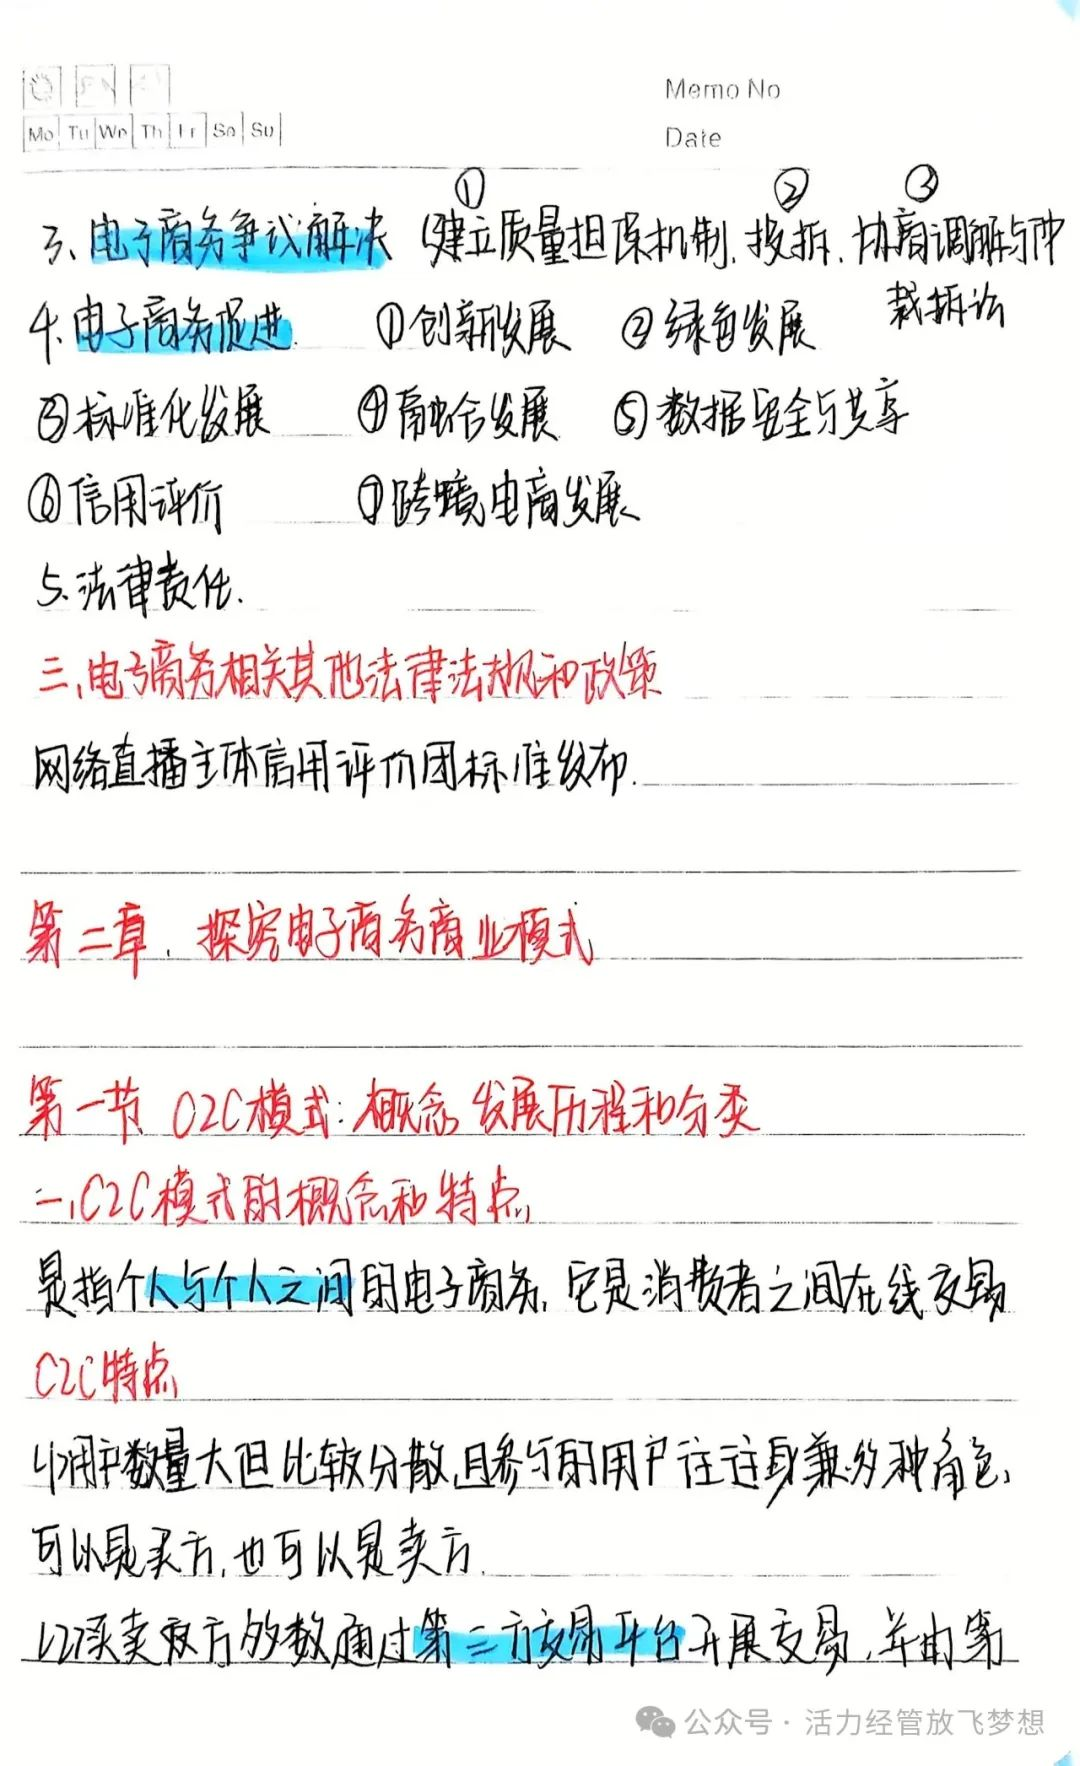 Memo No
Mo Tu We Th Fr Sa Su
Date
① ② ③
3、电子商务争议解决(建立质量担保机制、投拆、协商调解与仲
裁拆讼
4、电子商务促进 ①创新发展 ②绿色发展
③标准化发展 ④融合发展 ⑤数据安全与共享
⑥信用评价 ⑦跨境电商发展
5、法律责任.
三、电子商务相关其他法律法规和政策
网络直播主体信用评价团标准发布.
第二章、探究电子商务商业模式
第一节 C2C模式:概念 发展历程和分类
一、C2C模式的概念和特点
是指个人与个人之间的电子商务,它是消费者之间在线交易
C2C特点
(1)用户数量大但比较分散,且参与的用户往往身兼多种角色,
可以是买方,也可以是卖方.
(2)买卖双方多数通过第三方交易平台开展交易,并由第
公众号·活力经管放飞梦想